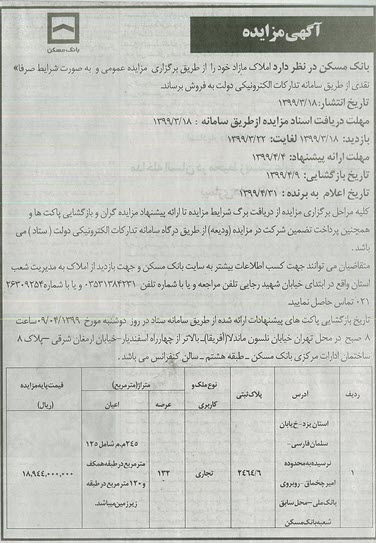 آگهی مزایده
بانک مسکن
بانک مسکن در نظر دارد املاک مازاد خود را از طریق برگزاری مزایده عمومی و به صورت شرایط صرفا»
نقدی از طریق سامانه تدارکات الکترونیکی دولت به فروش برساند.
تاریخ انتشار: ۱۳۹۹/۳/۱۸
مهلت دریافت اسناد مزایده از طریق سامانه : ۱۳۹۹/۳/۱۸
بازدید: ۱۳۹۹/۳/۱۸ لغایت: ۱۳۹۹/۳/۲۲
مهلت ارائه پیشنهاد: ۱۳۹۹/۴/۴
تاریخ بازگشایی: ۱۳۹۹/۴/۹
تاریخ اعلام به برنده : ۱۳۹۹/۴/۳۱
کلیه مراحل برگزاری مزایده از دریافت برگ شرایط مزایده تا ارائه پیشنهاد مزایده گران و بازگشایی پاکت ها و
همچنین پرداخت تضمین شرکت در مزایده (ودیعه) از طریق درگاه سامانه تدارکات الکترونیکی دولت ( ستاد ) می
باشد .
متقاضیان می توانند جهت کسب اطلاعات بیشتر به سایت بانک مسکن و جهت بازدید از املاک به مدیریت شعب
استان واقع در ابتدای خیابان شهید رجایی تلفن مراجعه و یا با شماره تلفن ۰۳۵۳۱۳۸۴۲۳۱ و یا با شماره ۲۶۳۰۹۲۵۴
۰۲۱ تماس حاصل نمایید.
تاریخ بازگشایی پاکت های پیشنهادات ارائه شده از طریق سامانه ستاد در روز دوشنبه مورخ ۰۹/۰۴/۱۳۹۹ ساعت
۸ صبح در محل تهران خیابان نلسون ماندلا(آفریقا)ـ بالاتر از چهارراه اسفندیار-خیابان ارمغان شرقی –پلاک ۸
ساختمان ادارات مرکزی بانک مسکن ـ طبقه هشتم ـ سالن کنفرانس می باشد .
ردیف آدرس پلاک ثبتی نوع ملک و کاربری متراژ(مترمربع) عرصه اعیان قیمت پایه مزایده (ریال)
۱ استان یزد - خیابان سلمان فارسی - نرسیده به محدوده امیرچخماق - روبروی بانک ملی - محل سابق شعبه بانک مسکن ۲۴۶۴/۶ تجاری ۱۳۲ ۲۴۵ م.م شامل ۱۲۵ مترمربع در طبقه همکف و ۱۲۰ مترمربع در طبقه زیرزمین میباشد. ۱۸,۹۴۴,۰۰۰,۰۰۰